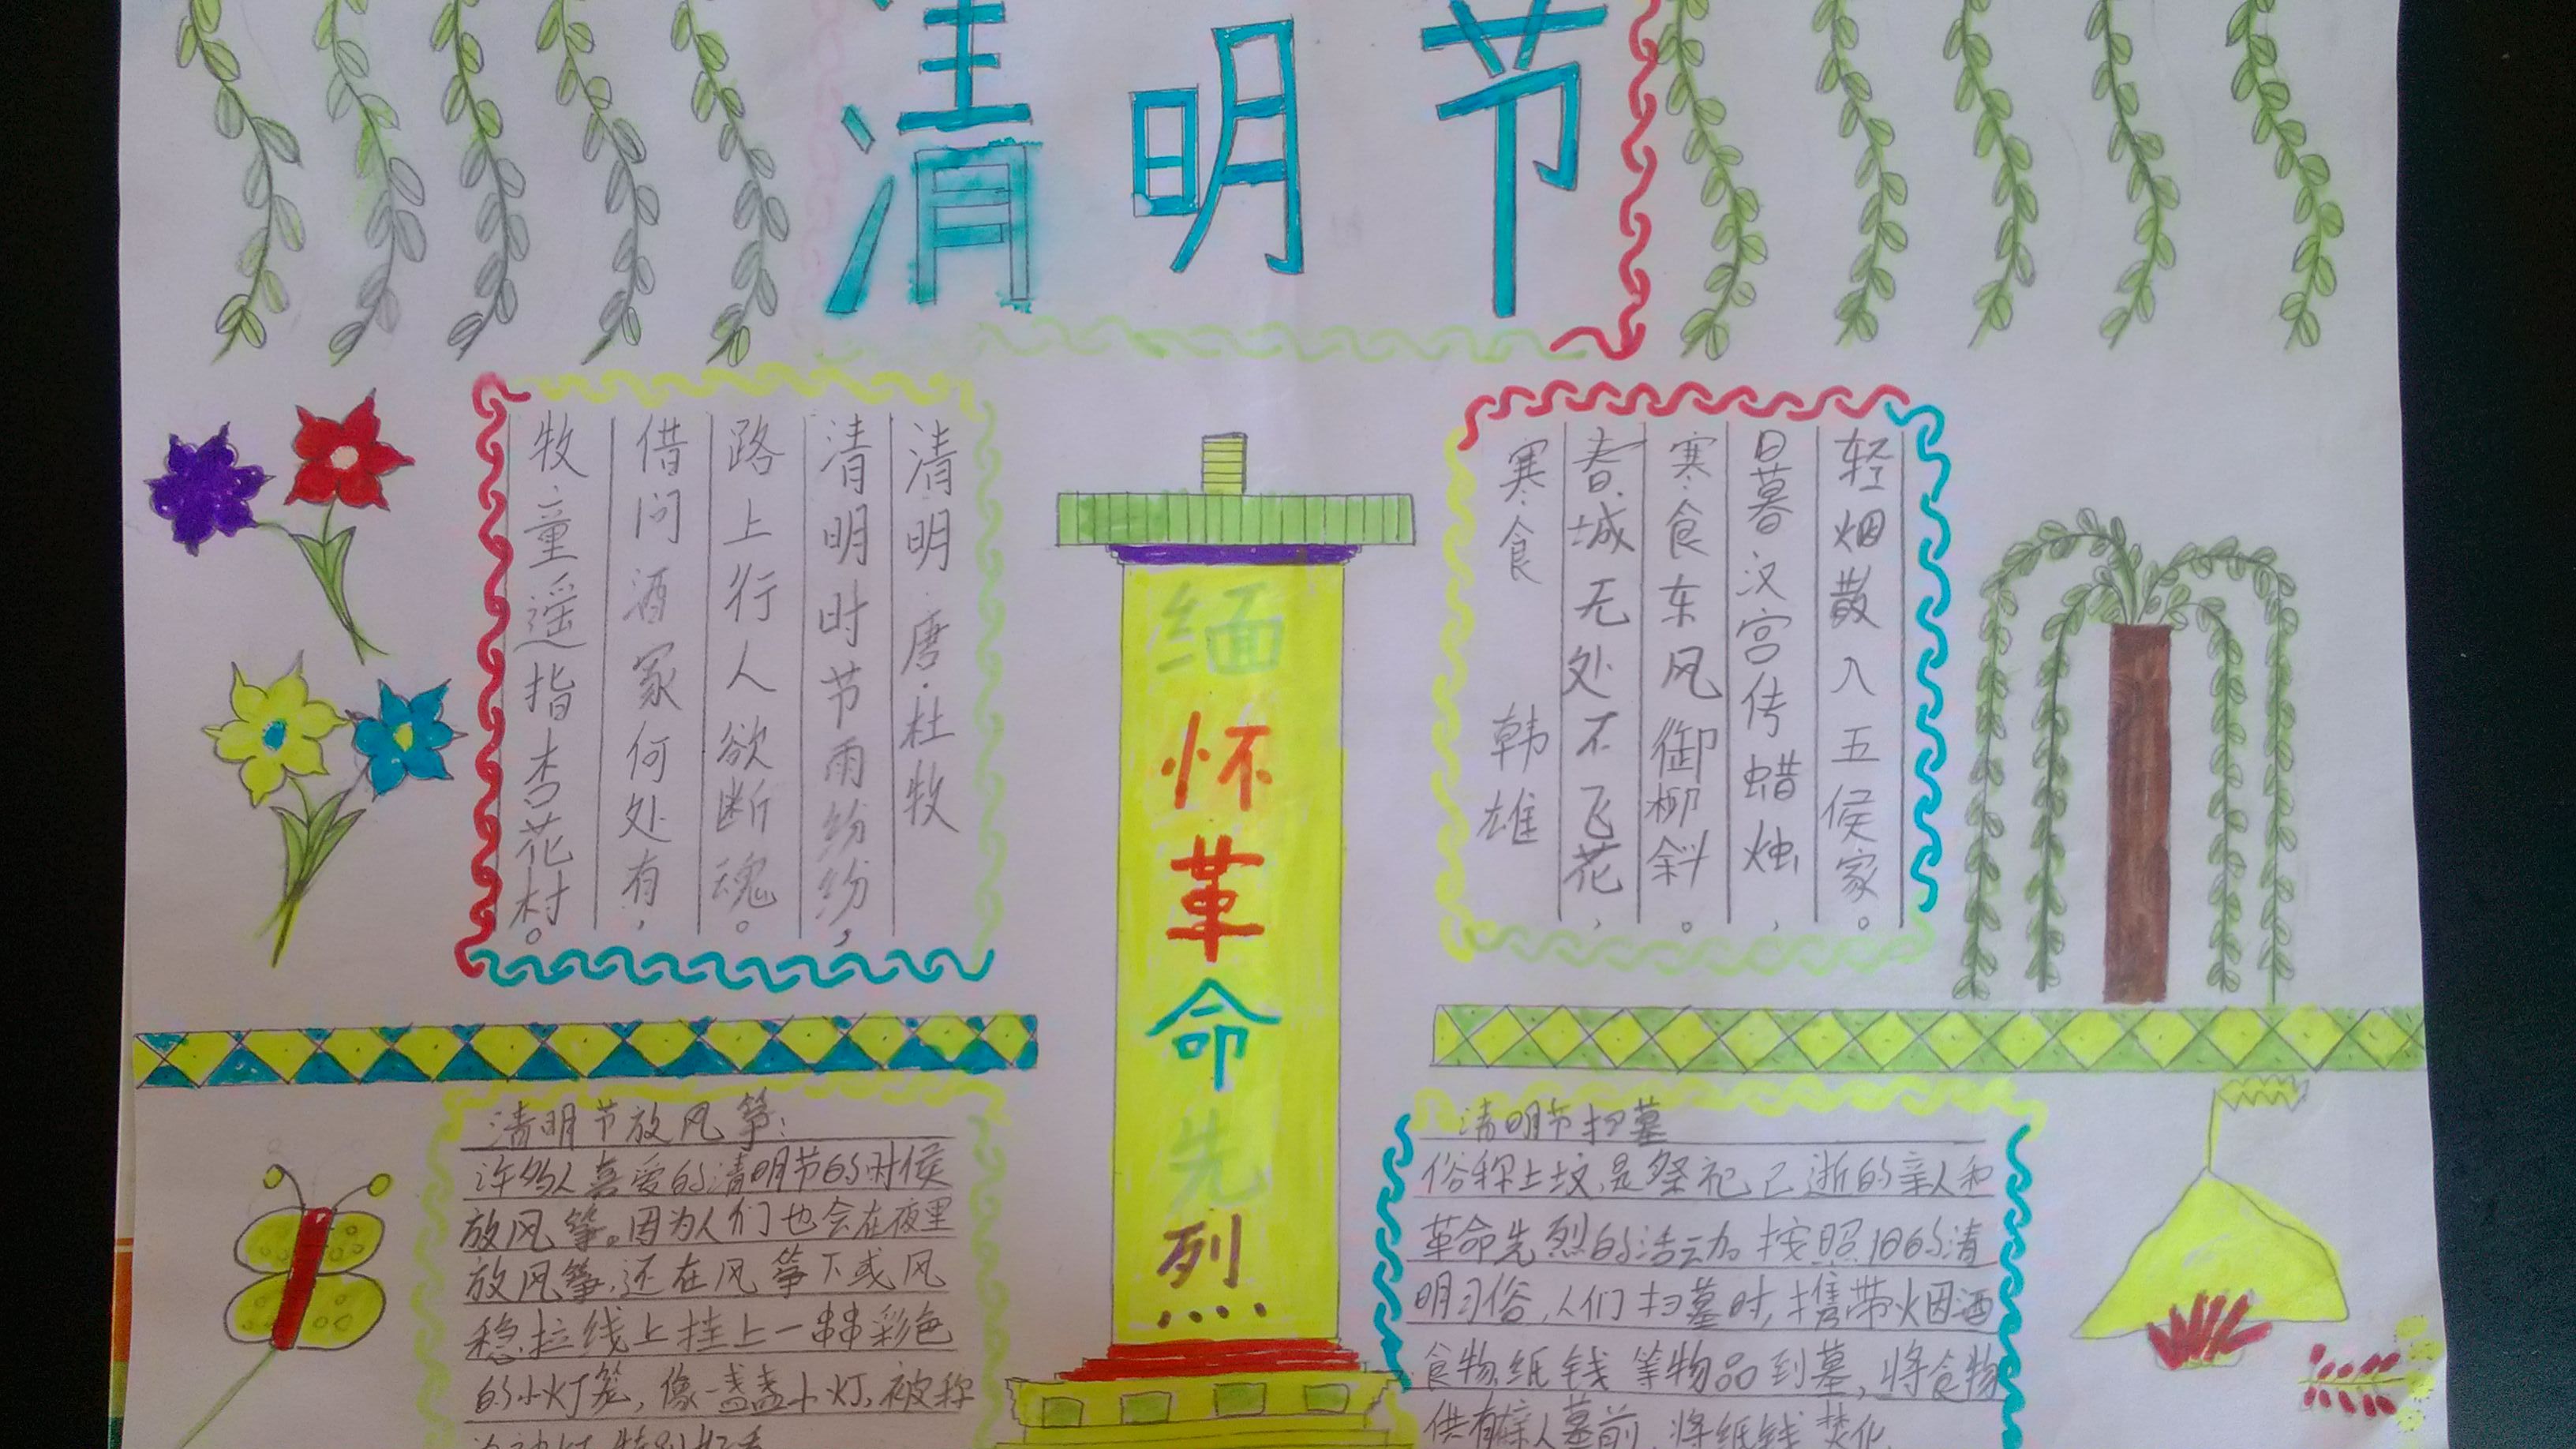 清明节
清明 唐·杜牧
清明时节雨纷纷，
路上行人欲断魂。
借问酒家何处有，
牧童遥指杏花村。
缅怀革命先烈
寒食 韩雄
春城无处不飞花，
寒食东风御柳斜。
日暮汉宫传蜡烛，
轻烟散入五侯家。
清明节放风筝：
许多人喜爱的清明节的时候
放风筝。因为人们也会在夜里
放风筝，还在风筝下或风
稳拉线上挂上一串串彩色
的小灯笼，像一盏盏小灯，被称
清明节扫墓
俗称上坟，是祭祀已逝的亲人和
革命先烈的活动。按照旧的清
明习俗，人们扫墓时，携带烟酒
食物，纸钱等物品到墓，将食物
供有亲人墓前，将纸钱焚化